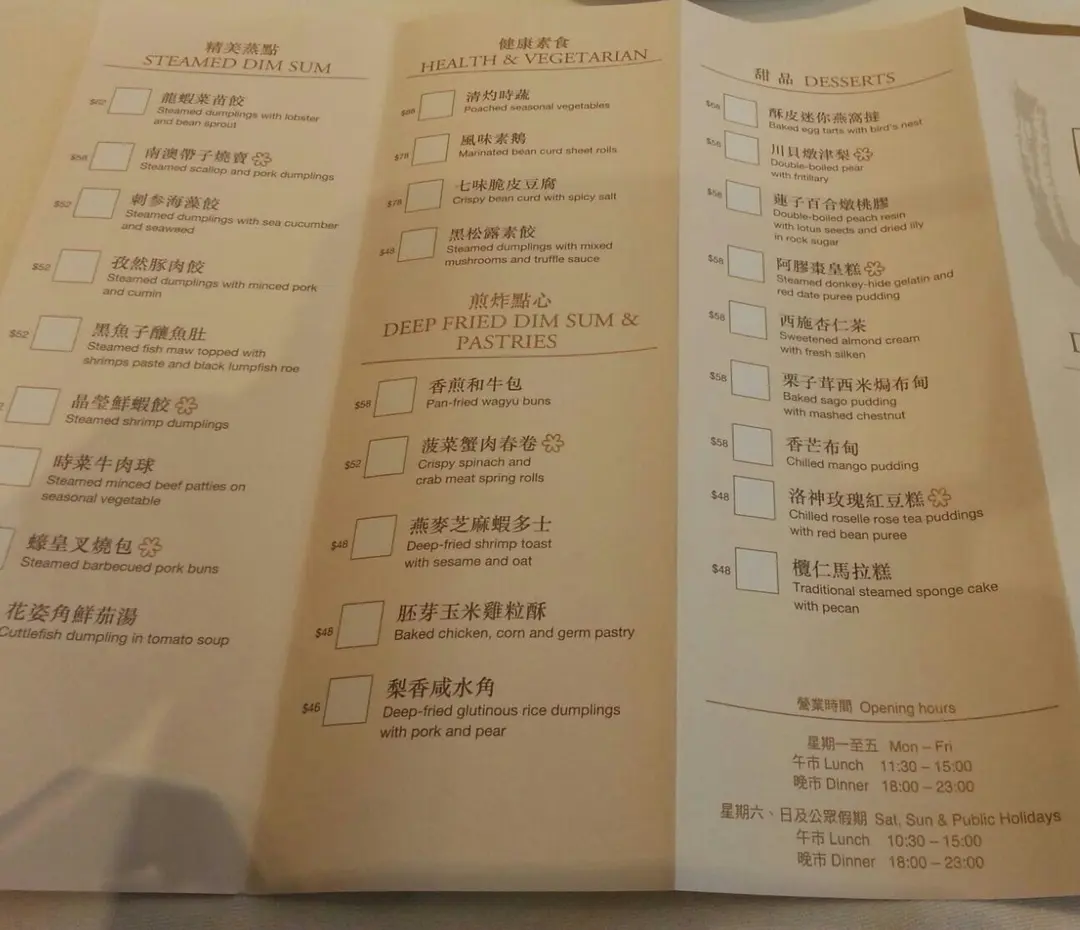 精美蒸點
STEAMED DIM SUM
$62 龍蝦菜苗餃
Steamed dumplings with lobster
and bean sprout
$58 南澳帶子燒賣
Steamed scallop and pork dumplings
$52 刺参海藻餃
Steamed dumplings with sea cucumber
and seaweed
$52 孜然豚肉餃
Steamed dumplings with minced pork
and cumin
$52 黑魚子釀魚肚
Steamed fish maw topped with
shrimps paste and black lumpfish roe
晶瑩鮮蝦餃
Steamed shrimp dumplings
時菜牛肉球
Steamed minced beef patties on
seasonal vegetable
蠔皇叉燒包
Steamed barbecued pork buns
花姿角鮮茄湯
Cuttlefish dumpling in tomato soup
健康素食
HEALTH & VEGETARIAN
清灼時蔬
Poached seasonal vegetables
$78 風味素鵝
Marinated bean curd sheet rolls
$78 七味脆皮豆腐
Crispy bean curd with spicy salt
$48 黑松露素餃
Steamed dumplings with mixed
mushrooms and truffle sauce
煎炸點心
DEEP FRIED DIM SUM &
PASTRIES
$58 香煎和牛包
Pan-fried wagyu buns
$52 菠菜蟹肉春卷
Crispy spinach and
crab meat spring rolls
$48 燕麥芝麻蝦多士
Deep-fried shrimp toast
with sesame and oat
$48 胚芽玉米雞粒酥
Baked chicken, corn and germ pastry
$46 梨香咸水角
Deep-fried glutinous rice dumplings
with pork and pear
甜品 DESSERTS
$68 酥皮迷你燕窩撻
Baked egg tarts with bird's nest
$58 川貝燉津梨
Double-boiled pear
with fritillary
$58 蓮子百合燉桃膠
Double-boiled peach resin
with lotus seeds and dried lily
in rock sugar
$58 阿膠棗皇糕
Steamed donkey-hide gelatin and
red date puree pudding
$58 西施杏仁茶
Sweetened almond cream
with fresh silken
$58 栗子茸西米焗布甸
Baked sago pudding
with mashed chestnut
$58 香芒布甸
Chilled mango pudding
$48 洛神玫瑰紅豆糕
Chilled roselle rose tea puddings
with red bean puree
$48 欖仁馬拉糕
Traditional steamed sponge cake
with pecan
營業時間 Opening hours
星期一至五 Mon – Fri
午市 Lunch 11:30 – 15:00
晚市 Dinner 18:00 – 23:00
星期六、日及公眾假期 Sat, Sun & Public Holidays
午市 Lunch 10:30 – 15:00
晚市 Dinner 18:00 – 23:00